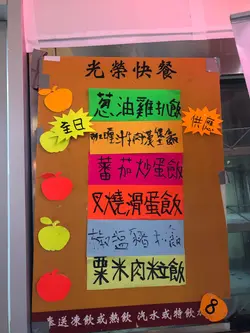 光榮快餐
蔥油雞扒飯
全日
供應
蕃茄炒蛋飯
叉燒滑蛋飯
椒鹽豬扒飯
粟米肉粒飯
奉送凍飲或熱飲 汽水或特飲加
8